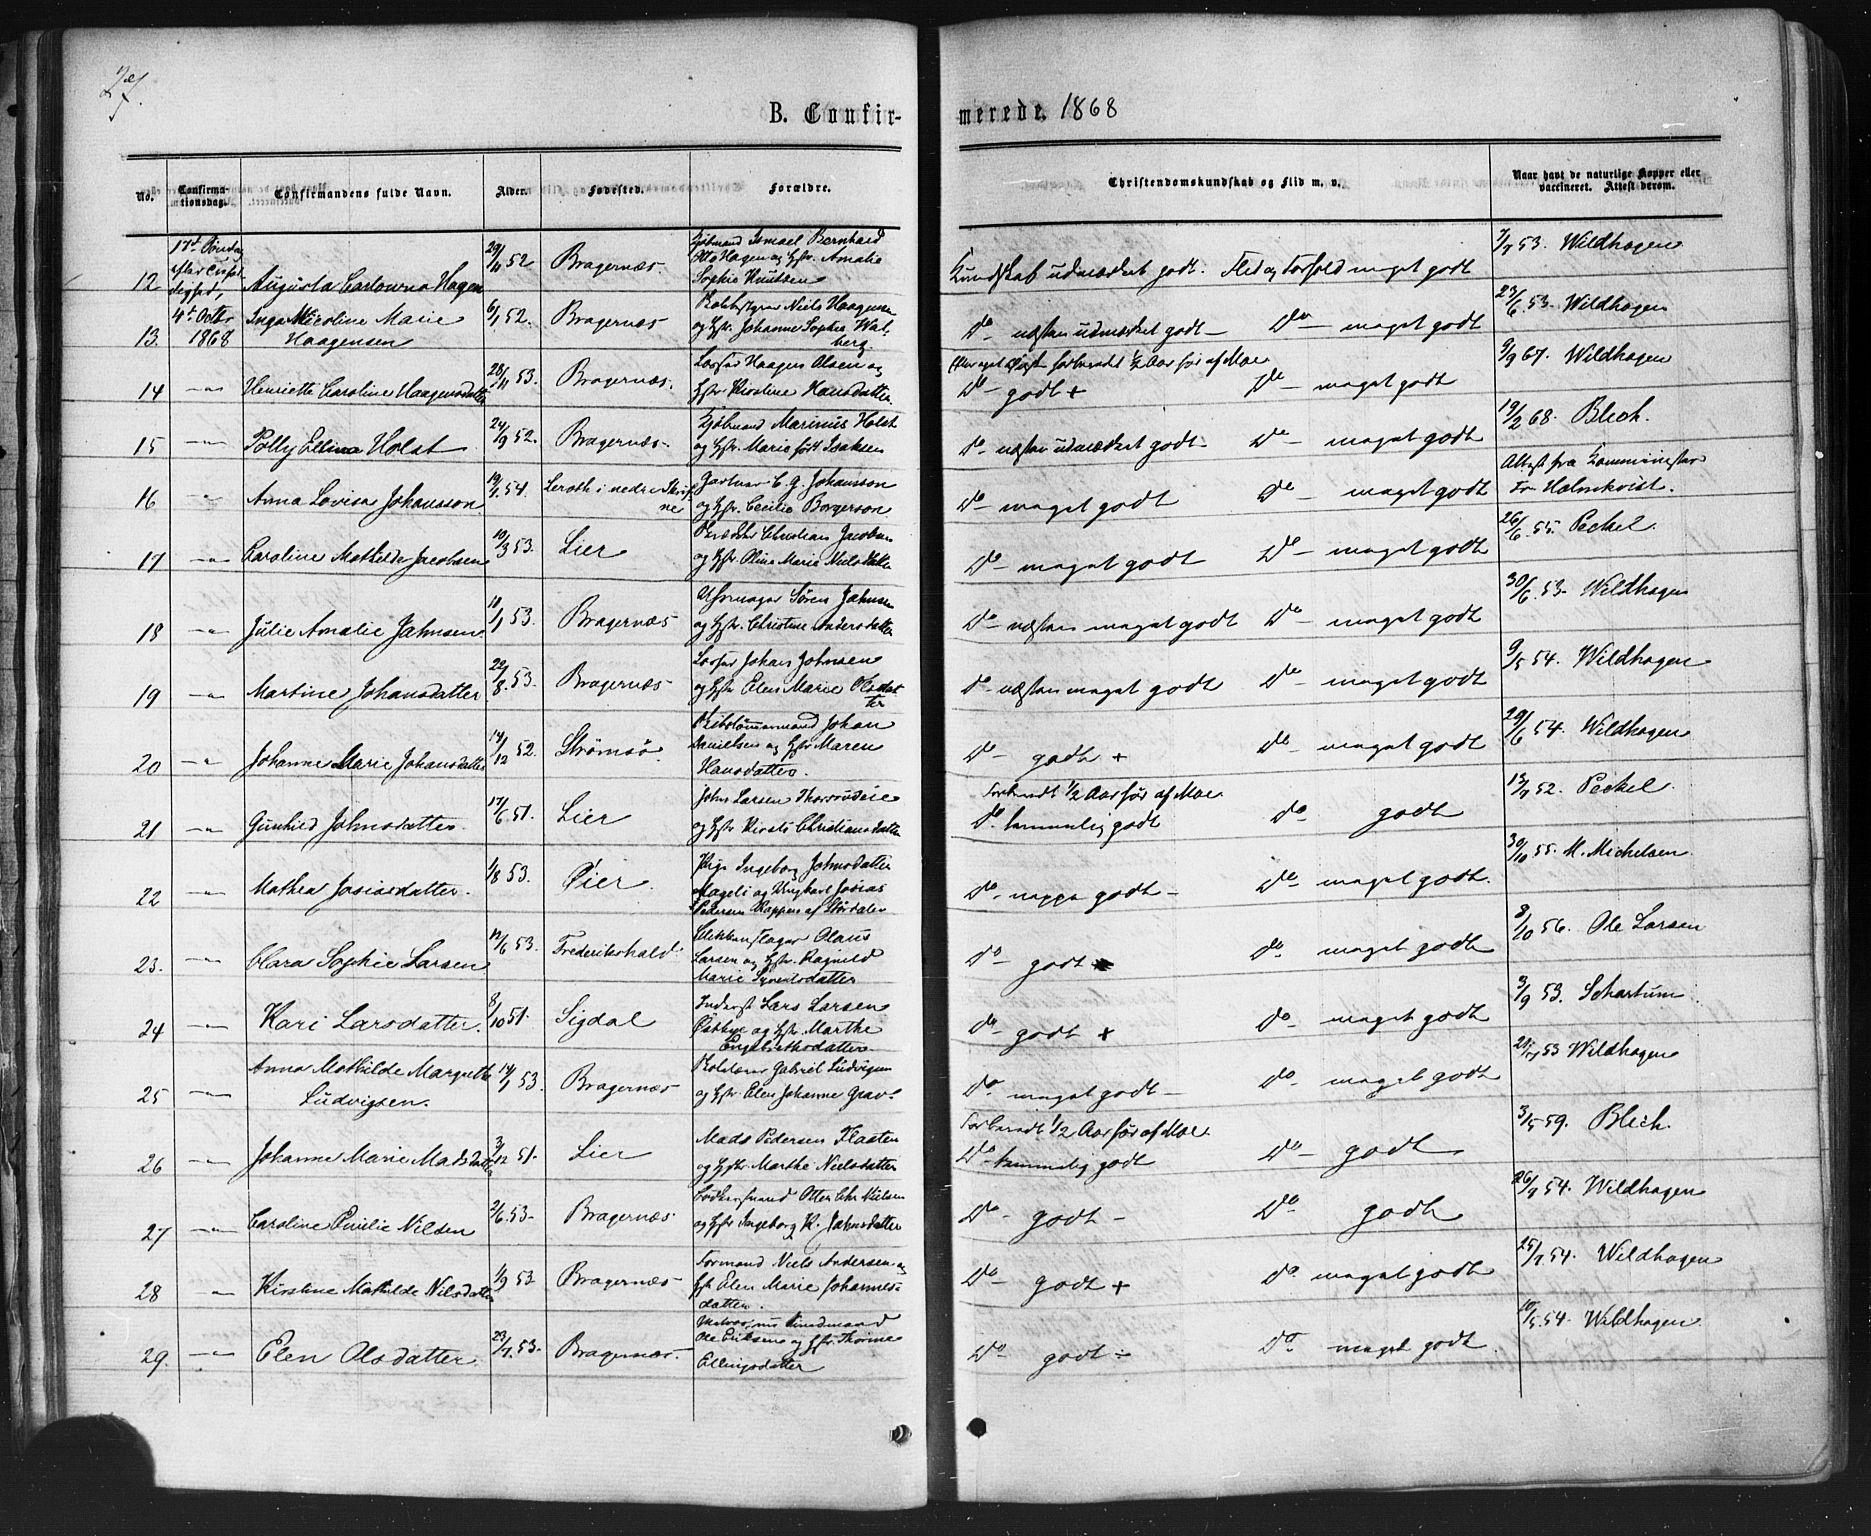 27.
B. Confir-
merede. 1868
No.
Confirma-
tionsdag.
Confirmandens fulde Navn.
Alder.
Fødested.
Forældre.
Christendomskundskab og Flid m. v.
Naar havt de naturlige Kopper eller
vaccineret. Attest derom.
17de Søndag
efter
4de Octbr
1868
12 Augusta Hagen 29/11 52 Bragernæs. Kjøbmand Ismael Bernhard
Otto Hagen og Hstr. Amalie
Sophie Knutsen
Kundskab udmærket godt. Flid og Forhold meget godt 7/7 53. Wildhagen
13. Inga Nicoline Marie
Haagensen 6/1 52. Bragernæs Niels Haagensen
og Hstr. Johanne Sophie Wal-
berg
Do næsten udmærket godt – Do – meget godt 23/6 53. Wildhagen
14 –"– Henriette Caroline Haagensdatter 28/11 53. Bragernæs. Losser Haagen Olsen og
Hstr Kirstine Hansdatter
forberedt 1/2 Aar før af Moe
Do – godt + Do – meget godt 9/9 67. Wildhagen
15 –"– Polly Elina Holst 24/9 52. Bragernæs – Kjøbmand Marinus Holst
og Hstr. Marie født Isaksen
do – næsten udmærket godt – Do – meget godt 19/2 68. Blech.
16 –"– Anna Lovisa Johansson 19/1 54. i nedre
ne Gartner C. G. Johansson
og Hstr. Cecilie Borgerson
Do – meget godt Do – meget godt Attest fra Komminister
Fr Holmkvist.
17 –"– Caroline Mathilde Jacobsen 10/3 53. Lier Christian Jacobsen
og Hstr. Oline Marie Nielsdatter
Do – meget godt Do – meget godt 26/6 55. Peckel.
18 –"– Julie Amalie Jahnsen 18/1 53. Bragernæs Søren Jahnsen
og Hstr. Christine Andersdatter
Do – næsten meget godt Do – meget godt 30/6 53. Wildhagen
19 –"– Martine Johansdatter 22/8 53. Bragernæs Losser Johan Johnsen
og Hstr Elen Marie Olsdat
ter
Do – næsten meget godt Do – meget godt 9/5 54. Wildhagen
20 –"– Johanne Marie Johansdatter 14/12 52. Strømsø. Johan
Danielsen og Hstr Maren
Hansdatter.
Do – godt + do – meget godt 29/6 54. Wildhagen
21 –"– Gunhild Johnsdatter. 17/6 51. Lier John Larsen
og Hstr Kirsti Christiansdatter
Forberedt 1/2 Aar før af Moe
Do. temmelig godt do godt 13/7 52. Peckel.
22 –"– Mathea Josiasdatter. 1/8 53. Øier. Pige Ingeborg Johnsdatter
og Ungkarl Josias
Pedersen
Do – neppe godt – Do – meget godt. 30/10 55. M. Michelsen
23. –"– Clara Sophie Larsen 12/6 53. Frederikshald Olaus
Larsen og Hstr. Ragnild
Marie
Do – godt do – meget godt 8/10 56. Ole Larsen
24 –"– Kari Larsdatter. 8/10 51. Sigdal Inderst Lars Larsen
og Hstr. Marthe
Engebrethsdatter
Do – godt + Do – meget godt 3/9 53. Schartum
25 –"– Anna Mathilde Margrethe
Ludvigsen. 14/1 53. Bragernæs Gabriel Ludvigsen
og Hstr. Elen Johanne Grav.
Do – meget godt – Do – meget godt 53 Wildhagen
26 –"– Johanne Marie Madsdatter 3/12 51. Lier Mads Pedersen
og Hstr. Marthe Nielsdatter
Forberedt 1/2 Aar før af Moe.
Do – temmelig godt Do – godt 3/5 59. Blech.
27 –"– Caroline Emilie Nilsen 2/6 53. Bragernæs Otter Chr Nielsen
og Hstr Ingeborg K. Jahnsdatter
Do – godt – Do godt 26/7 54. Wildhagen
28 –"– Kirstine Mathilde Nilsdatter 1/9 53 Bragernæs Formand Niels Andersen og
Hstr Elen Marie Johannes-
datter.
Do – godt + Do meget godt 25/7 54. Wildhagen
29 –"– Elen Olsdatter. 23/7 53. Bragernæs.
Ole Eriksen og Hstr Thorine
Ellingsdatter
Do godt – Do – meget godt 10/5 54. Wildhagen